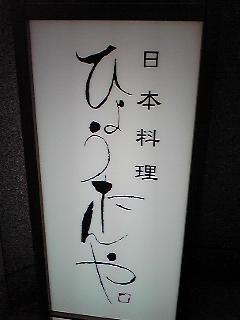 日本料理
ひょうたんや